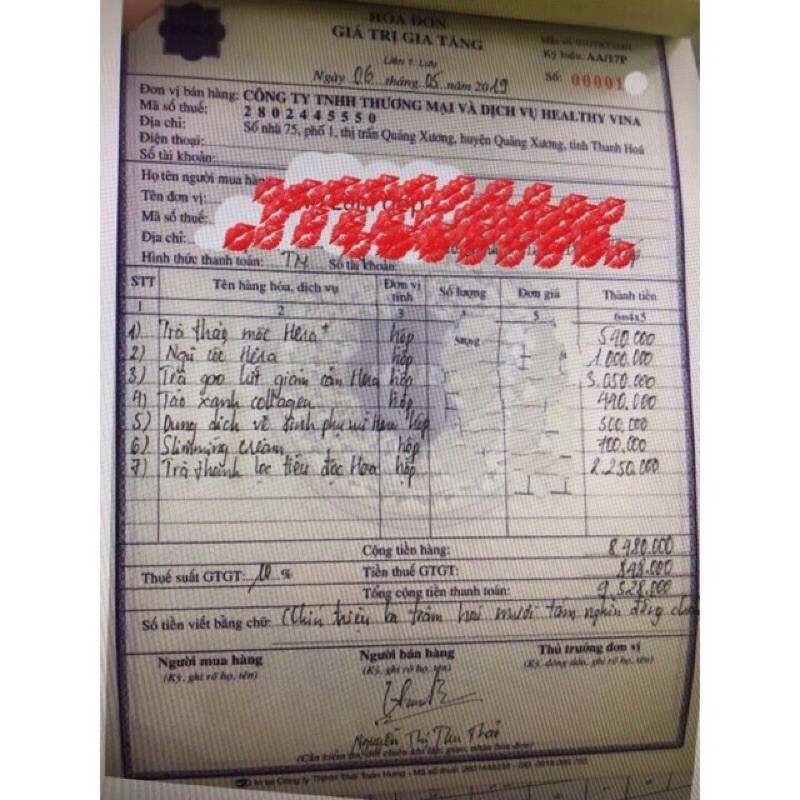 HÓA ĐƠN
GIÁ TRỊ GIA TĂNG
Liên 1: Lưu
Ký hiệu: AA/17P
Ngày 06 tháng 05 năm 2019
Số: 00001
Đơn vị bán hàng: CÔNG TY TNHH THƯƠNG MẠI VÀ DỊCH VỤ HEALTHY VINA
Mã số thuế: 2802445550
Địa chỉ: Số nhà 75, phố 1, thị trấn Quảng Xương, huyện Quảng Xương, tỉnh Thanh Hoá
Điện thoại:
Số tài khoản:
Họ tên người mua hàng
Tên đơn vị:
Mã số thuế:
Địa chỉ:
Hình thức thanh toán: TM Số tài khoản:
STT Tên hàng hóa, dịch vụ Đơn vị tính Số lượng Đơn giá Thành tiền
1 2 3 4 5 6=4x5
1) Trà thảo mộc Hera+ hộp 590.000
2) Ngũ cốc Hera hộp 1.000.000
3) Trà gạo lứt giảm cân Hera hộp 3.050.000
4) Táo xanh collagen hộp 490.000
5) Dung dịch vệ sinh phụ nữ Hera hộp 500.000
6) Slimming cream hộp 700.000
7) Trà thanh lọc tiêu độc Hera hộp 2.250.000
Cộng tiền hàng: 8.480.000
Thuế suất GTGT: 10 % Tiền thuế GTGT: 848.000
Tổng cộng tiền thanh toán: 9.328.000
Số tiền viết bằng chữ: Chín triệu ba trăm hai mươi tám nghìn đồng
Người mua hàng Người bán hàng Thủ trưởng đơn vị
(Ký, ghi rõ họ, tên) (Ký, ghi rõ họ, tên) (Ký, đóng dấu, ghi rõ họ, tên)
Nguyễn Thị Thu Thảo
(Cần kiểm tra, đối chiếu khi lập, giao, nhận hóa đơn)